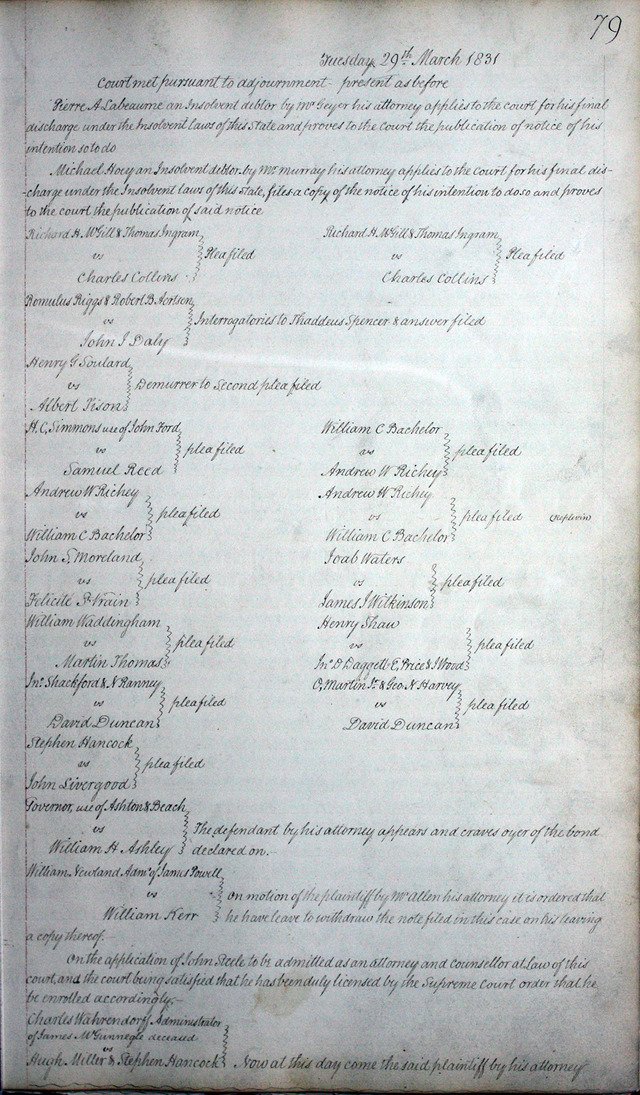 79
Tuesday 29th March 1831
Court met pursuant to adjournment - present as before
Pierre A Labeaume an Insolvent debtor by Mr Geyer his attorney applies to the court for his final
discharge under the Insolvent laws of this State and proves to the Court the publication of notice of his
intention so to do
Michael Hoey an Insolvent debtor by Mr Murray his attorney applies to the court for his final dis-
-charge under the Insolvent laws of this State, files a copy of the notice of his intention to do so and proves
to the court the publication of said notice
Richard H. McGill & Thomas Ingram
vs
Plea filed
Charles Collins
Richard H. McGill & Thomas Ingram
vs
Plea filed
Charles Collins
Romulus Riggs & Robert B.
vs
Interrogatories to Thaddeus Spencer & answer filed
John J Daly
Henry G Soulard
vs
Demurrer to Second plea filed
Albert Tison
H. C. Simmons use of John Ford
vs
plea filed
Samuel Reed
William C Bachelor
vs
plea filed
Andrew W Richey
Andrew W Richey
vs
plea filed
William C Bachelor
Andrew W Richey
vs
plea filed
William C Bachelor
John S. Moreland
vs
plea filed
Felicite St Vrain
Joab Waters
vs
plea filed
James J Wilkinson
William Waddingham
vs
plea filed
Martin Thomas
Henry Shaw
vs
plea filed
Jno D Daggett E. Price & J Wood
Jno Shackford & N Ranney
vs
plea filed
David Duncan
O, Martin Jr & Geo. N Harvey
vs
plea filed
David Duncan
Stephen Hancock
vs
plea filed
John Livergood
Governor, use of Ashton & Beach
vs
The defendant by his attorney appears and craves oyer of the bond
William H Ashley declared on.-
William Newland Admr of James Powell
vs
On motion of the plaintiff by Mr Allen his attorney it is ordered that
William Kerr he have leave to withdraw the note filed in this case on his leaving
a copy thereof.-
On the application of John Steele to be admitted as an attorney and counsellor at Law of this
court, and the court being satisfied that he has been duly licensed by the Supreme Court order that he
be enrolled accordingly,-
Charles Wahrendorff Administrator
of James McGunnegle deceased
vs
Hugh Miller & Stephen Hancock Now at this day come the said plaintiff by his attorney